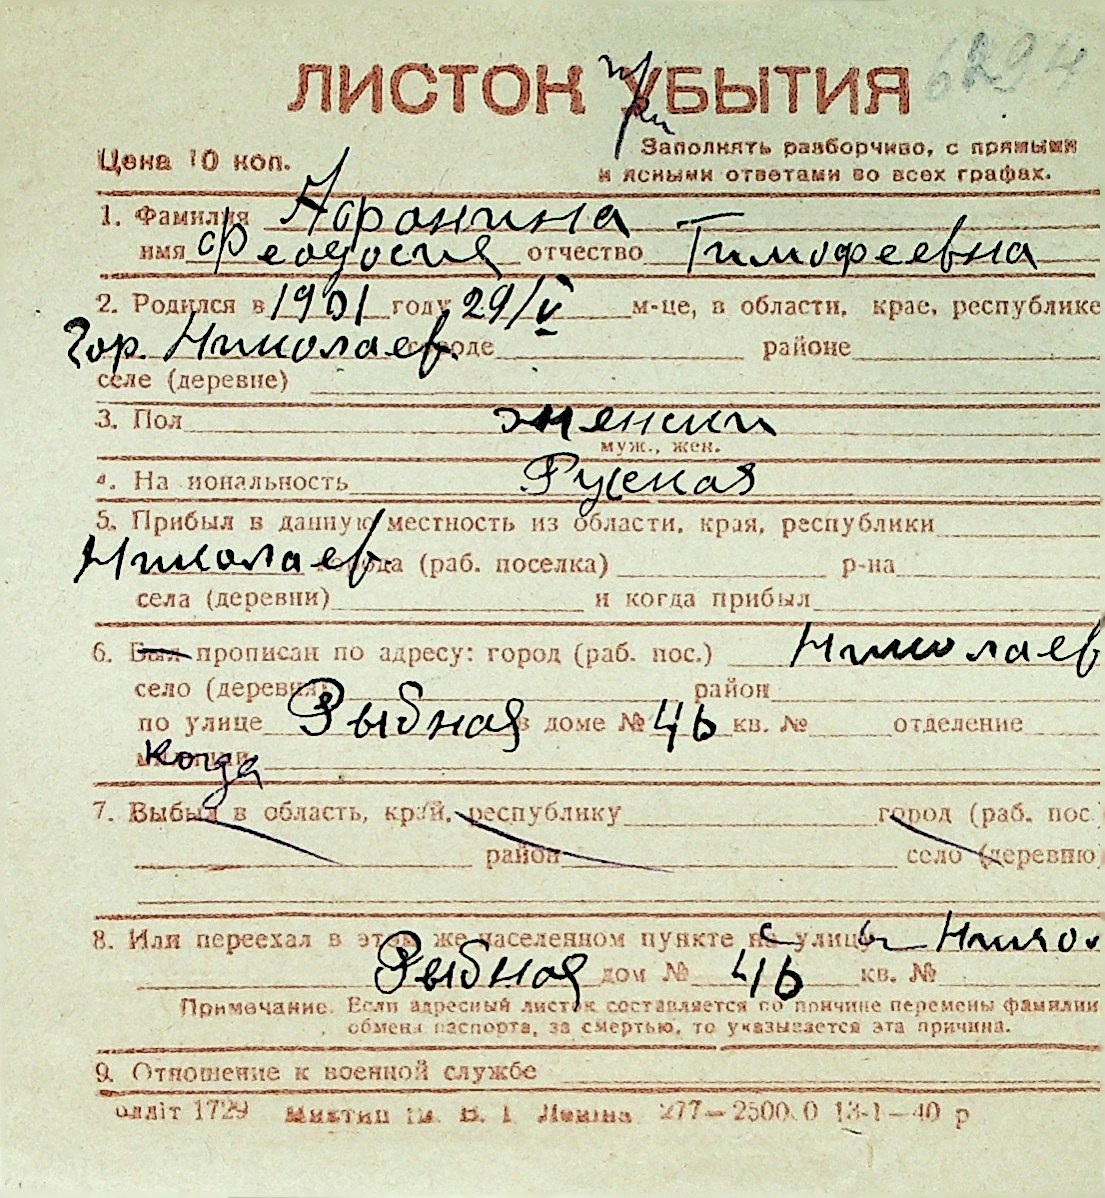 6294
ЛИСТОК УБЫТИЯ
при
Цена 10 коп.
Заполнять разборчиво, с прямыми
и ясными ответами во всех графах.
1. Фамилия Афонина
имя Феодосия отчество Тимофеевна
2. Родился в 1901 году 29/V м-це, в области, крае, республике
Гор. Николаев. городе районе
селе (деревне)
3. Пол женски
муж., жен.
4. Национальность Руская
5. Прибыл в данную местность из области, края, республики
Николаев. города (раб. поселка) р-на
села (деревни) и когда прибыл
6. Был прописан по адресу: город (раб. пос.) Николаев
село (деревня) район
по улице Рыбная в доме № 4б кв. № отделение
милиции
когда
7. Выбыл в область, край, республику город (раб. пос.)
район село (деревню)
8. Или переехал в этом же населенном пункте на улицу Никол
Рыбная дом № 4б кв. №
Примечание. Если адресный листок составляется по причине перемены фамилии
обмена паспорта, за смертью, то указывается эта причина.
9. Отношение к военной службе
лліт 1729 Миктип ім. В. І. Леніна 277—2500.0 13-1—40 р